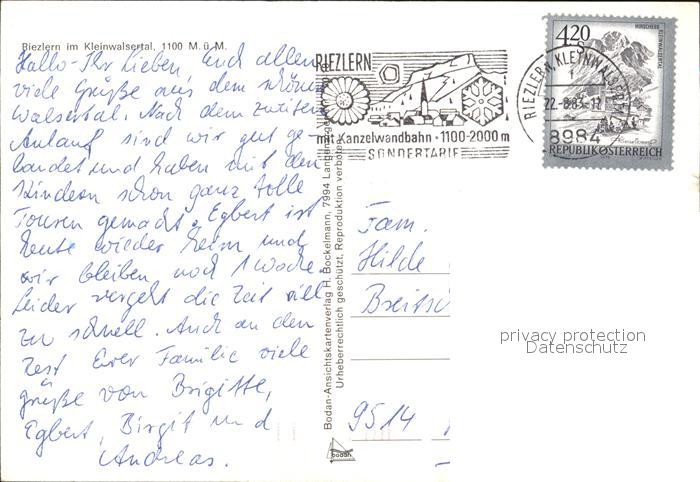 Riezlern im Kleinwalsertal, 1100 M.ü.M.
Hallo Ihr Lieben Euch allen
viele Grüße aus dem schönen
Walsertal. Nach dem zweiten
Anlauf sind wir gut ge-
landet und haben mit den
Kindern schon ganz tolle
Touren gemacht. Egbert ist
heute wieder heim und
wir bleiben noch 1 Woche.
Leider vergeht die Zeit viel
zu schnell. Auch an den
Rest Eurer Familie viele
Grüße von Brigitte,
Egbert, Birgit und
Andreas.
Bodan-Ansichtskartenverlag H. Bockelmann, 7994 Langenargen
Urheberrechtlich geschützt, Reproduktion verboten
bodan
RIEZLERN
mit Kanzelwandbahn · 1100-2000 m
SONDERTARIF
RIEZLERN, KLEINWALSERTAL
22.-8.83-12
8984
4.20
S
HIRSCHEGG
KLEINWALSERTAL
REPUBLIK ÖSTERREICH
Fam.
Hilde
Breitsc
9514
privacy protection
Datenschutz